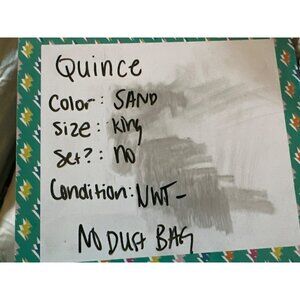 Quince
Color: SAND
Size: King
Set?: no
Condition: NWT-
NO DUST BAG